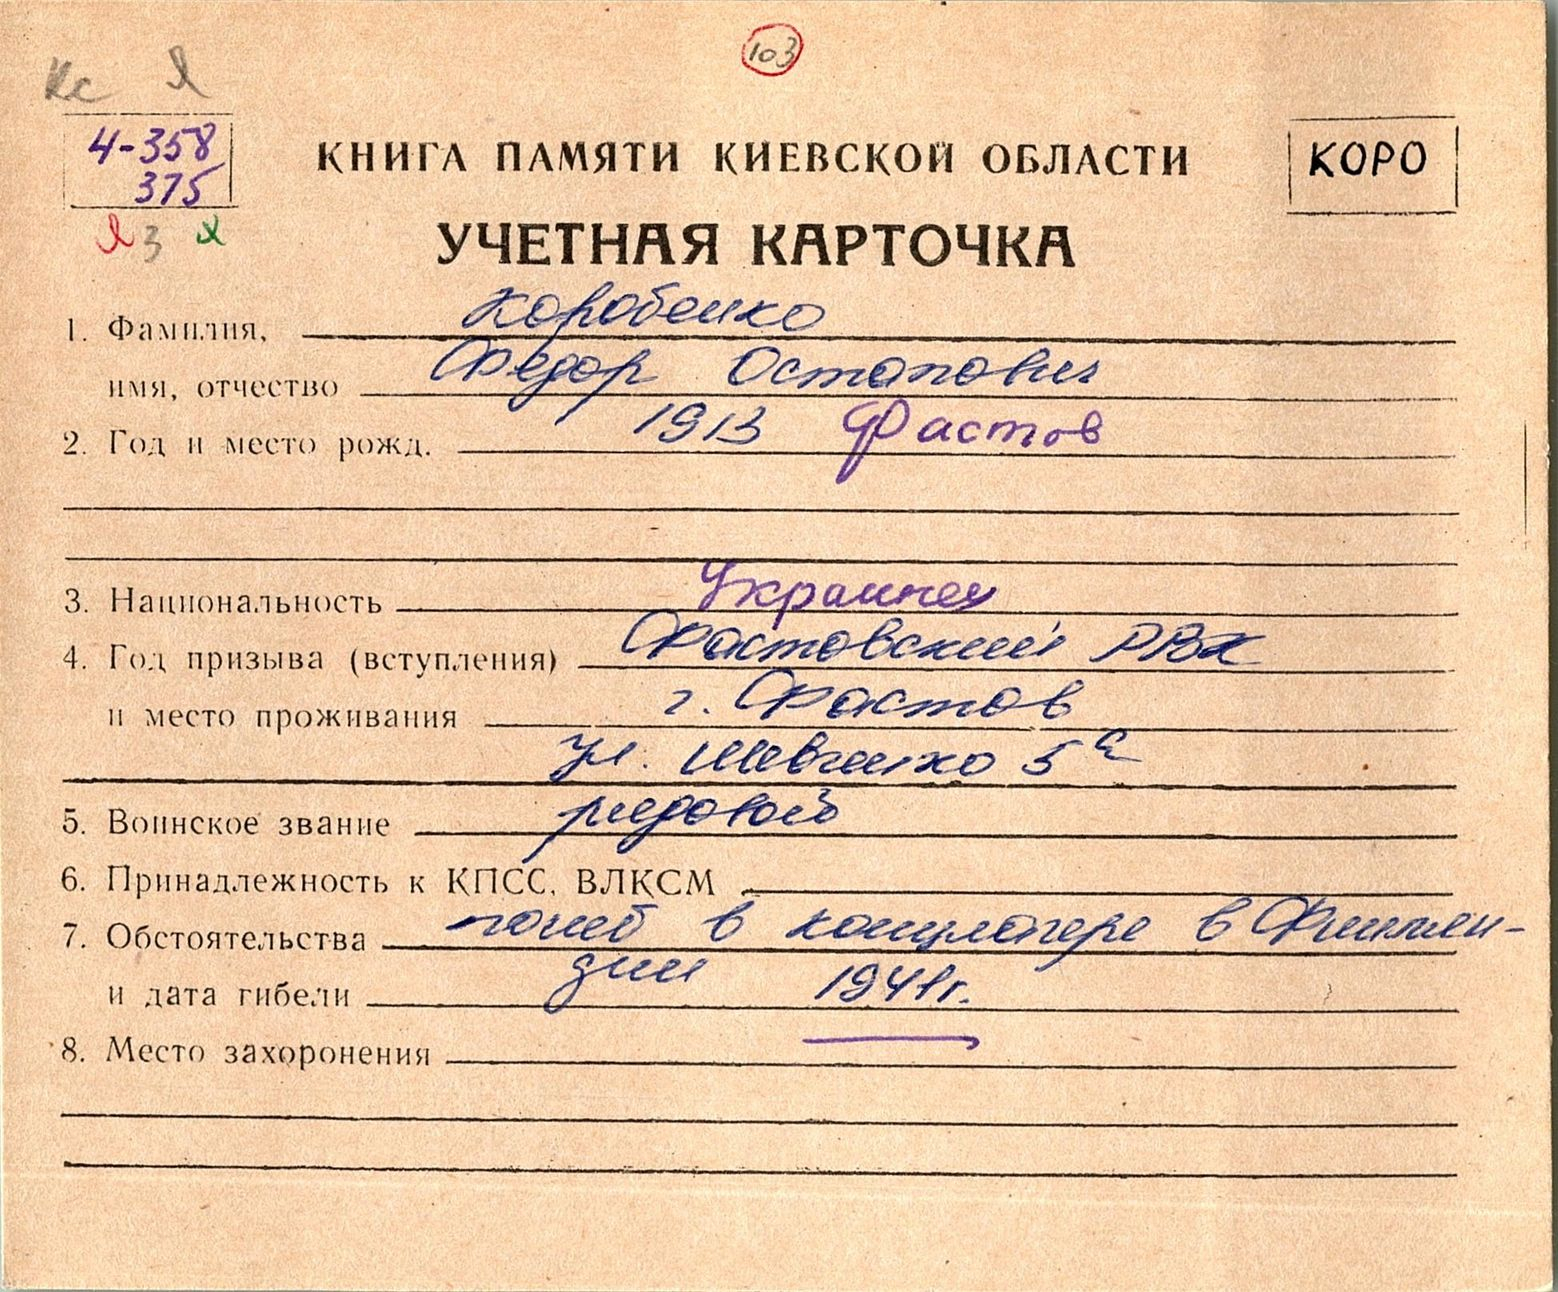 103
Кс Я
4-358
375
КНИГА ПАМЯТИ КИЕВСКОЙ ОБЛАСТИ
КОРО
З
УЧЕТНАЯ КАРТОЧКА
1. Фамилия, Коробенко
имя, отчество Федор Остапович
2. Год и место рожд. 1913 Фастов
3. Национальность Украинец
4. Год призыва (вступления) Фастовский РВК
и место проживания г. Фастов
ул. Шевченко 5а
5. Воинское звание рядовой
6. Принадлежность к КПСС, ВЛКСМ
7. Обстоятельства погиб в концлагере в Финлян-
и дата гибели дии 1941г.
8. Место захоронения